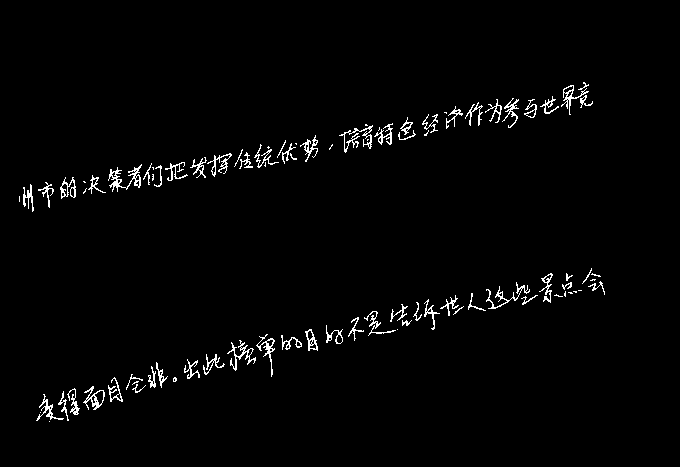 州市的决策者们把发挥传统优势，培育特色经济作为参与世界竞
变得面目全非。出此榜单的目的不是告诉世人这些景点会